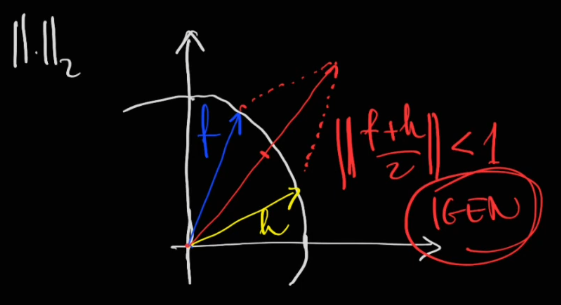 ||·||₂
f
h
||(f+h)/2|| < 1
IGEN